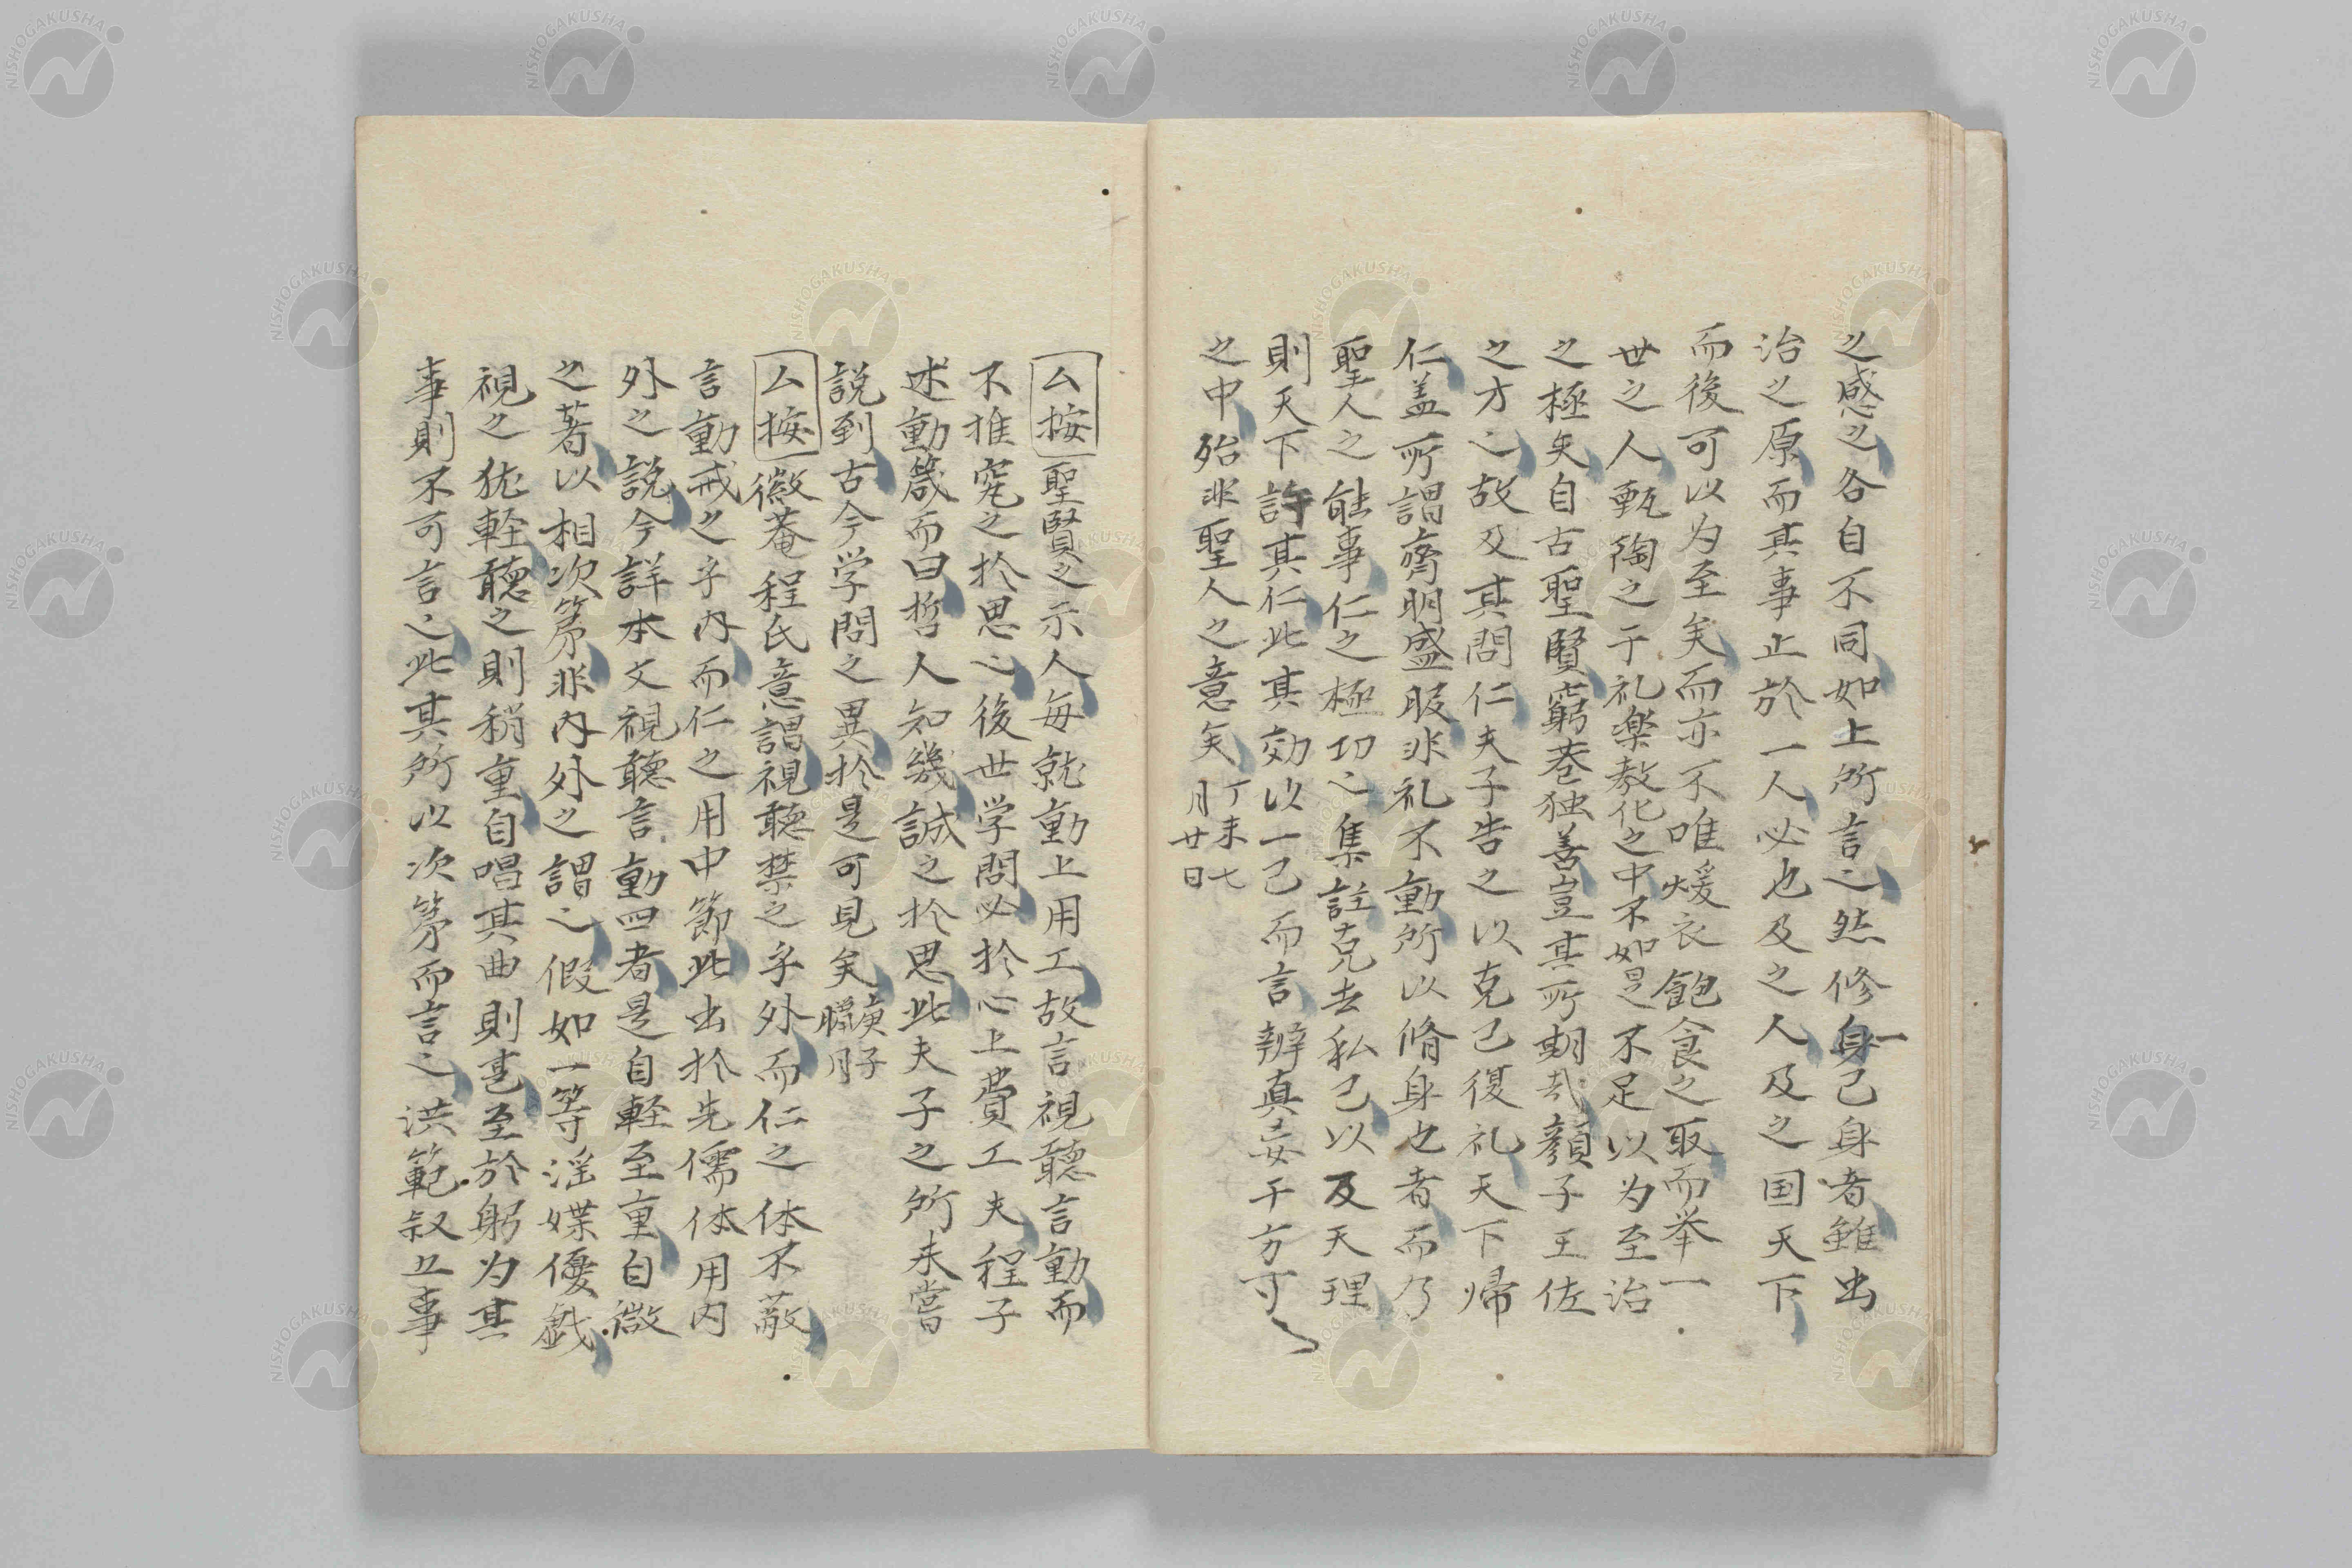 之感之各自不同如上所言之然修身己身者雖出
治之原而其事止於一人必也及之人及之国天下
而後可以为至矣而亦不唯煖衣飽食之取而举一
世之人甄陶之于礼楽教化之中不如是不足以为至治
之極矣自古聖賢窮巷独善豈其所期哉顔子王佐
之才之故及其問仁夫子告之以克己復礼天下帰
仁盖所謂齊明盛服非礼不動所以脩身也者而乃
聖人之能事仁之極功之集註克去私己以及天理
則天下許其仁此其効次一己而言辨真妄于方寸
之中殆非聖人之意矣丁未七
月廿日
厶按聖賢之示人每就動上用工故言視聴言動而
不推究之於思之後世学問必於心上費工夫程子
述動箴而曰哲人知幾誠之於思此夫子之所未嘗
説到古今学問之異於是可見矣庚子
臘月
厶按徽菴程氏意謂視聴禁之乎外而仁之体不蔽
言動戒之乎内而仁之用中節此出於先儒体用内
外之説今詳本文視聴言動四者是自軽至重自微
之著以相次第非内外之謂之假如一等淫媟優戯
視之犹軽聴之則稍重自唱其曲則甚至於躬为其
事則不可言之此其所以次第而言之洪範叙五事